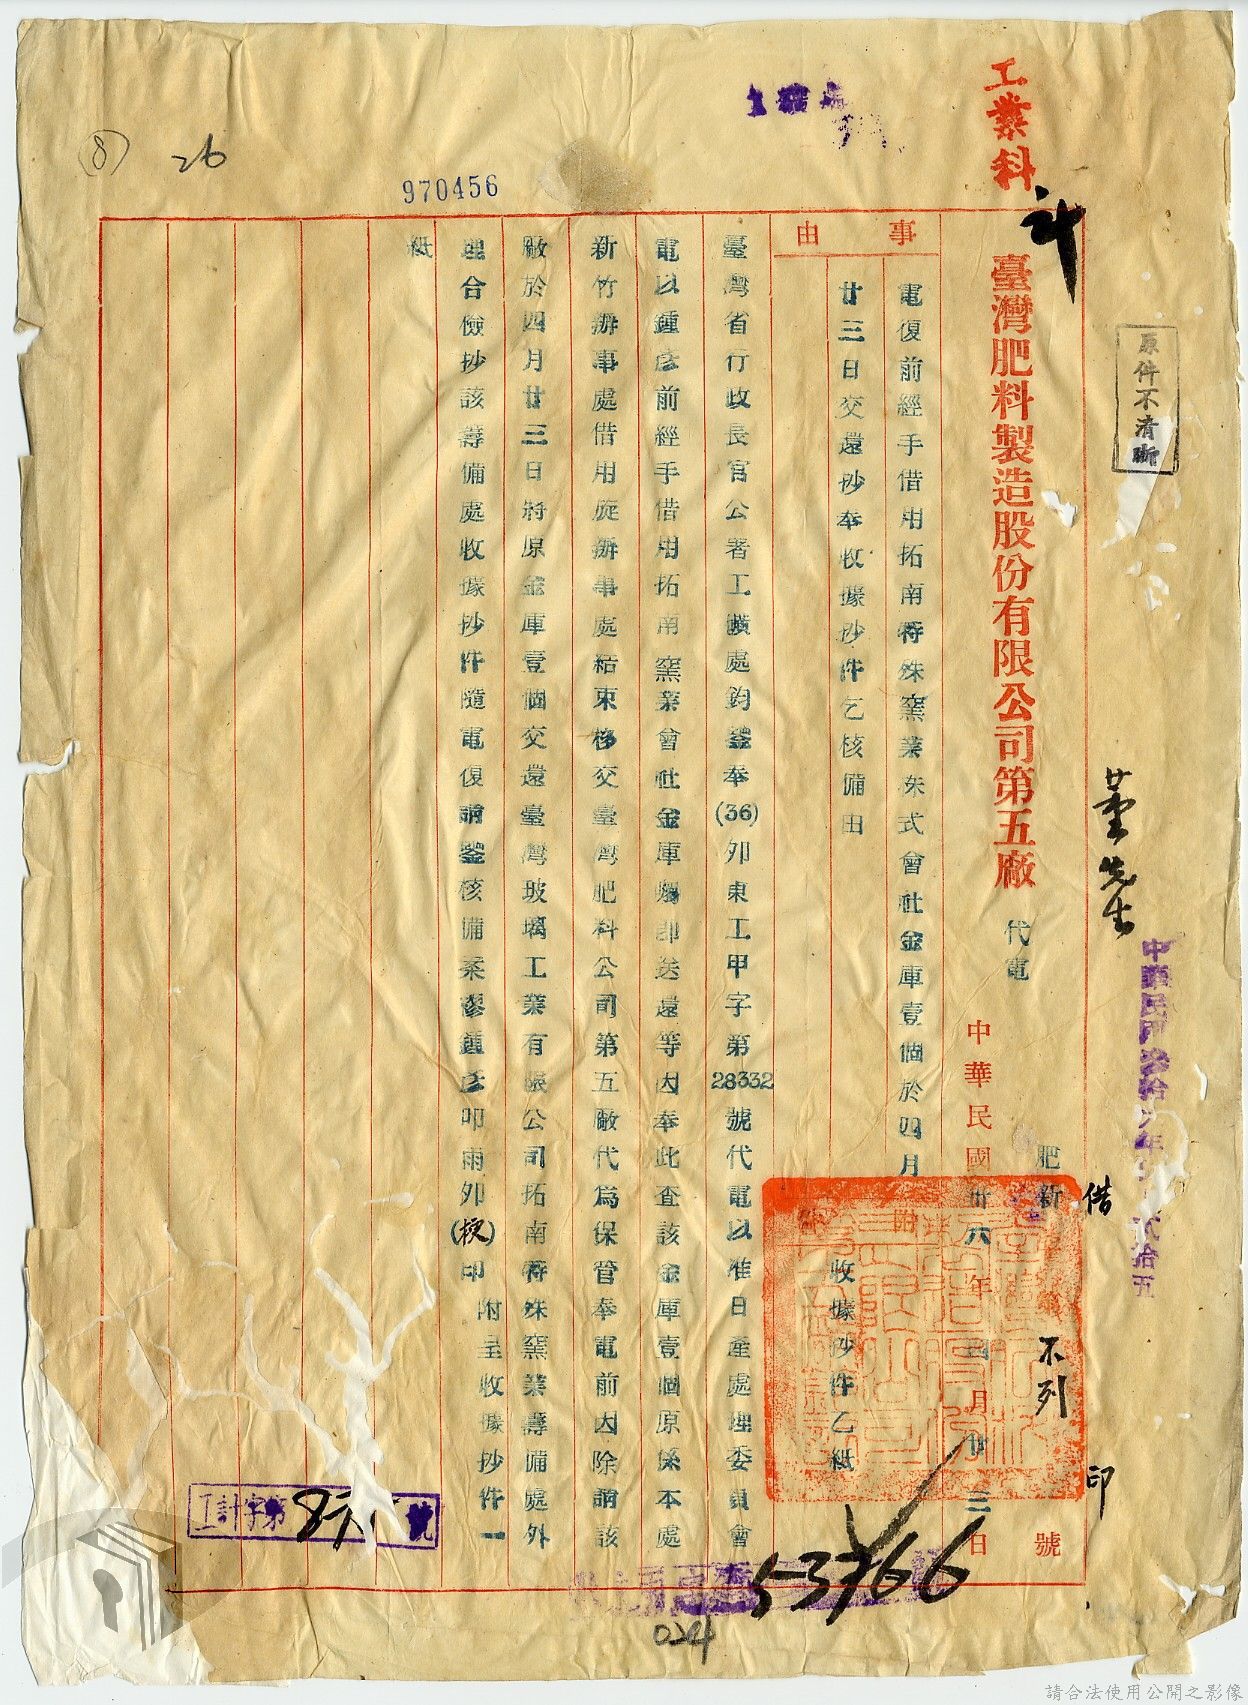 工業科
計
970456
26
(8)
原件不清晰
董先生
臺灣肥料製造股份有限公司第五廠
代電
肥新
號
不列
借
印
中華民國卅六年四月廿三日
事由
電復前經手借用拓南特殊窯業株式會社金庫壹個於四月
廿三日交還抄奉收據抄件乞核備由
收據抄件乙紙
臺灣省行政長官公署工礦處鈞鑒奉(36)卯東工甲字第28332號代電以准日產處理委員會
電以鍾彥前經手借用拓南窯業會社金庫囑即送還等因奉此查該金庫壹個原係本處
新竹辦事處借用旋辦事處結束移交臺灣肥料公司第五廠代為保管奉電前因除請該
廠於四月廿三日將原金庫壹個交還臺灣玻璃工業有限公司拓南特殊窯業籌備處外
理合儉抄該籌備處收據抄件隨電復請鑒核備案鍾彥叩雨卯(梗)印 附呈收據抄件一
紙
工計字第
號
53766
024
請合法使用公開之影像